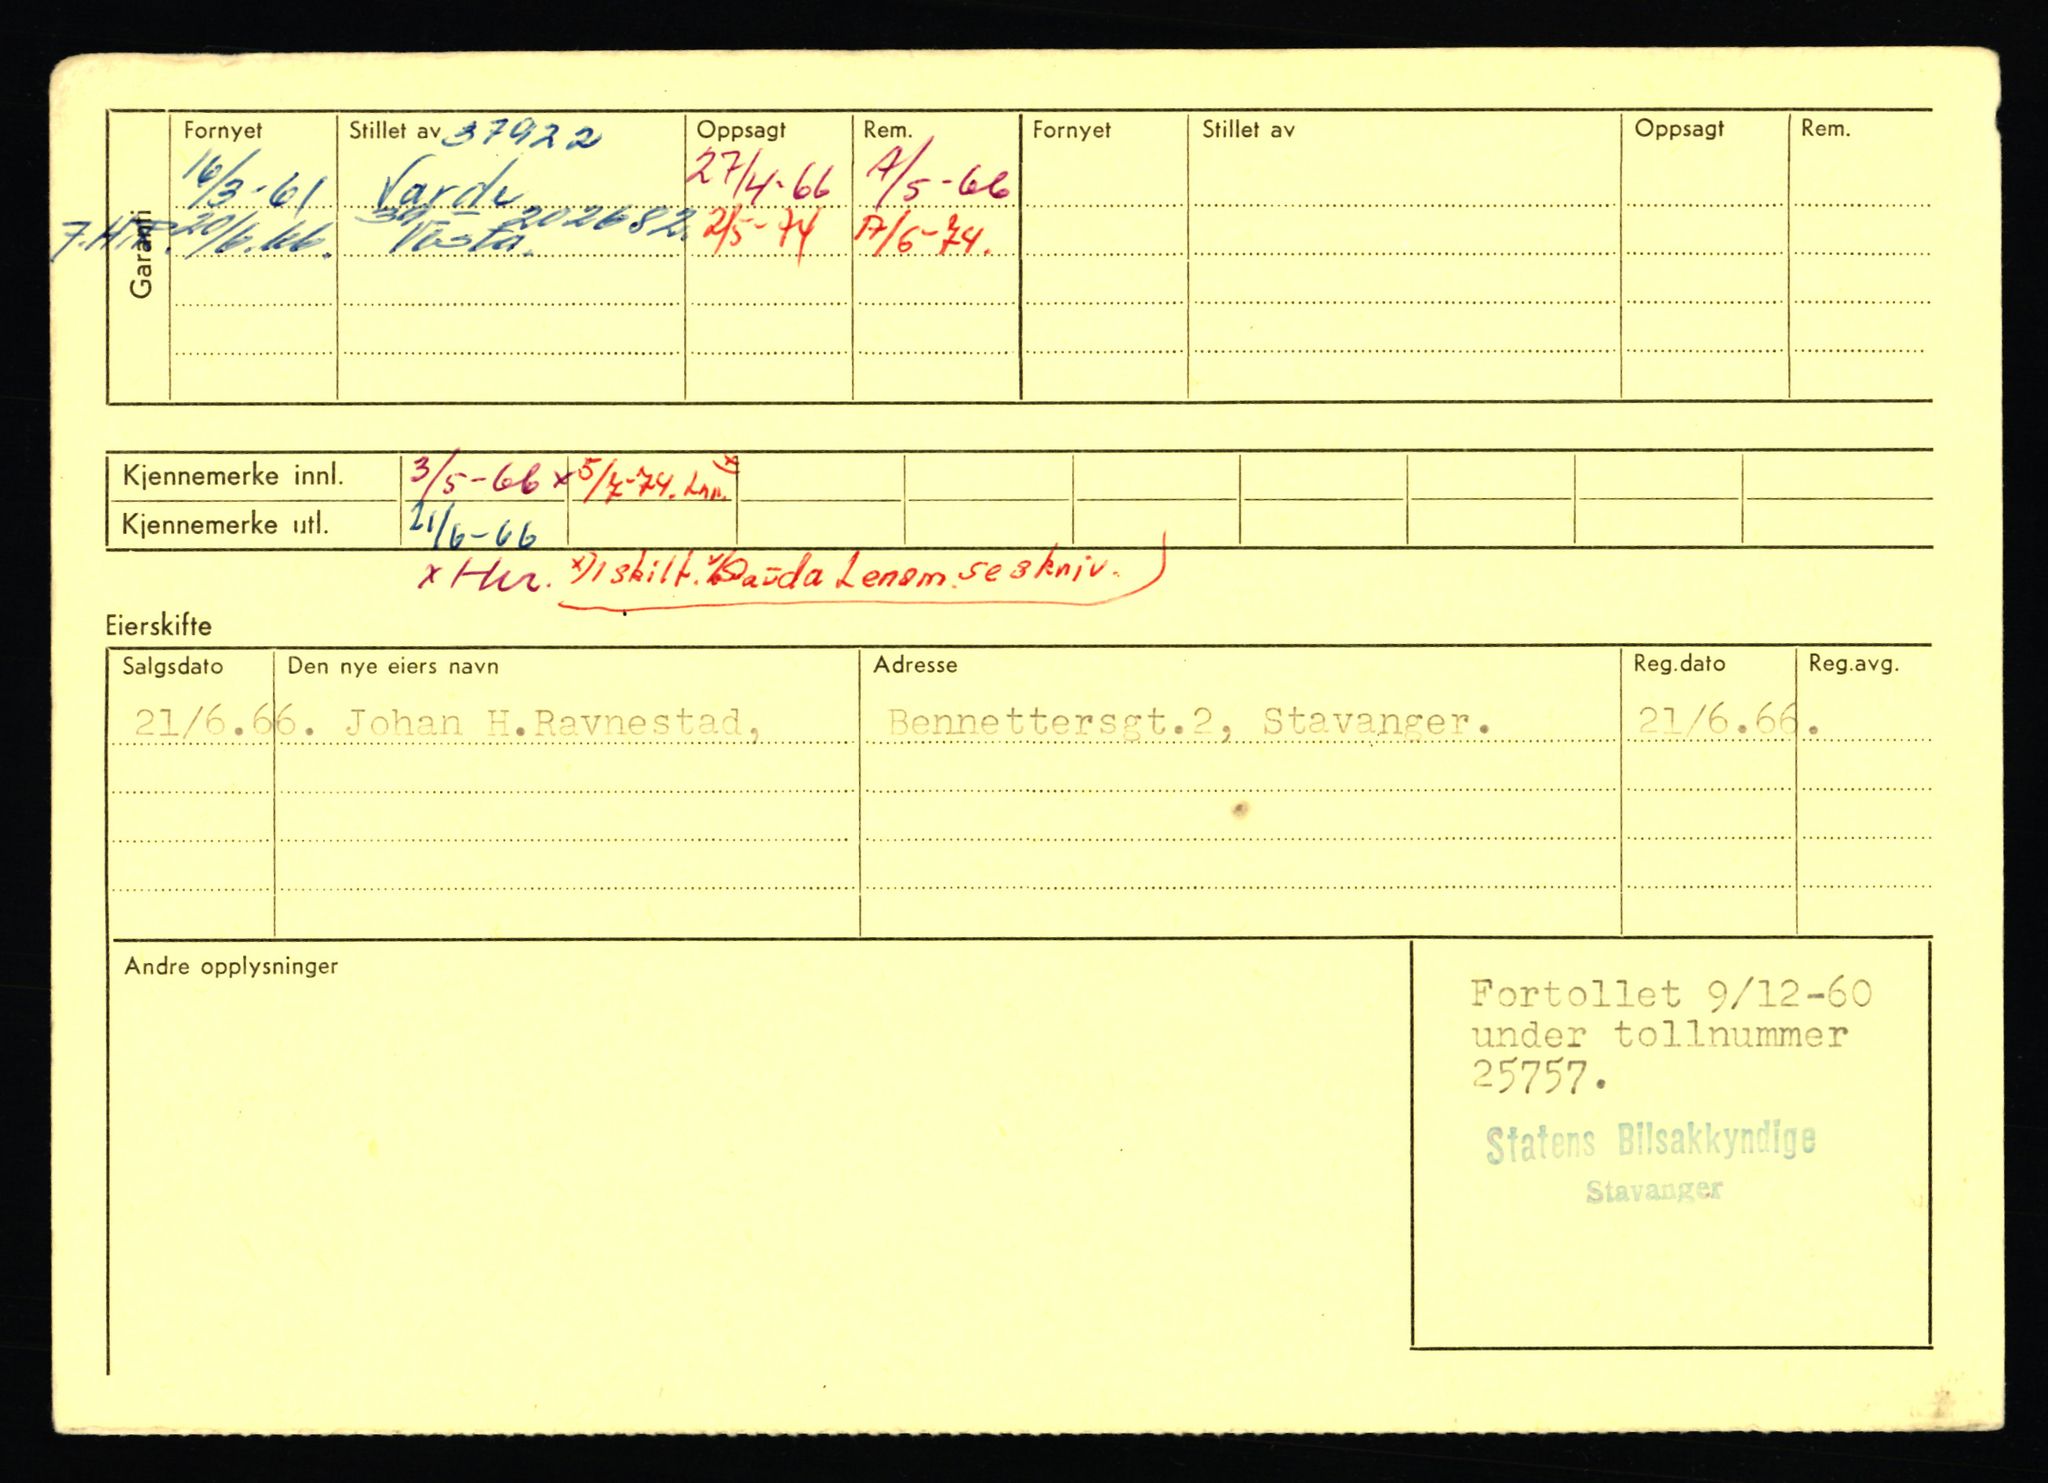 Garanti
Fornyet Stillet av 37922 Oppsagt Rem. Fornyet Stillet av Oppsagt Rem.
16/3-61 Varde 27/4-66 7/5-66
20/6.66. Vesta 202682. 2/5-74 17/6-74.
Kjennemerke innl. 3/5-66 x 5/7-74. Lnn. x)
Kjennemerke utl. 21/6-66
x Her. x) 1 skilt. Sauda Lensm. se skriv.
Eierskifte
Salgsdato Den nye eiers navn Adresse Reg.dato Reg.avg.
21/6.66. Johan H.Ravnestad, Bennettersgt.2, Stavanger. 21/6.66.
Andre opplysninger
Fortollet 9/12-60
under tollnummer
25757.
Statens Bilsakkyndige
Stavanger